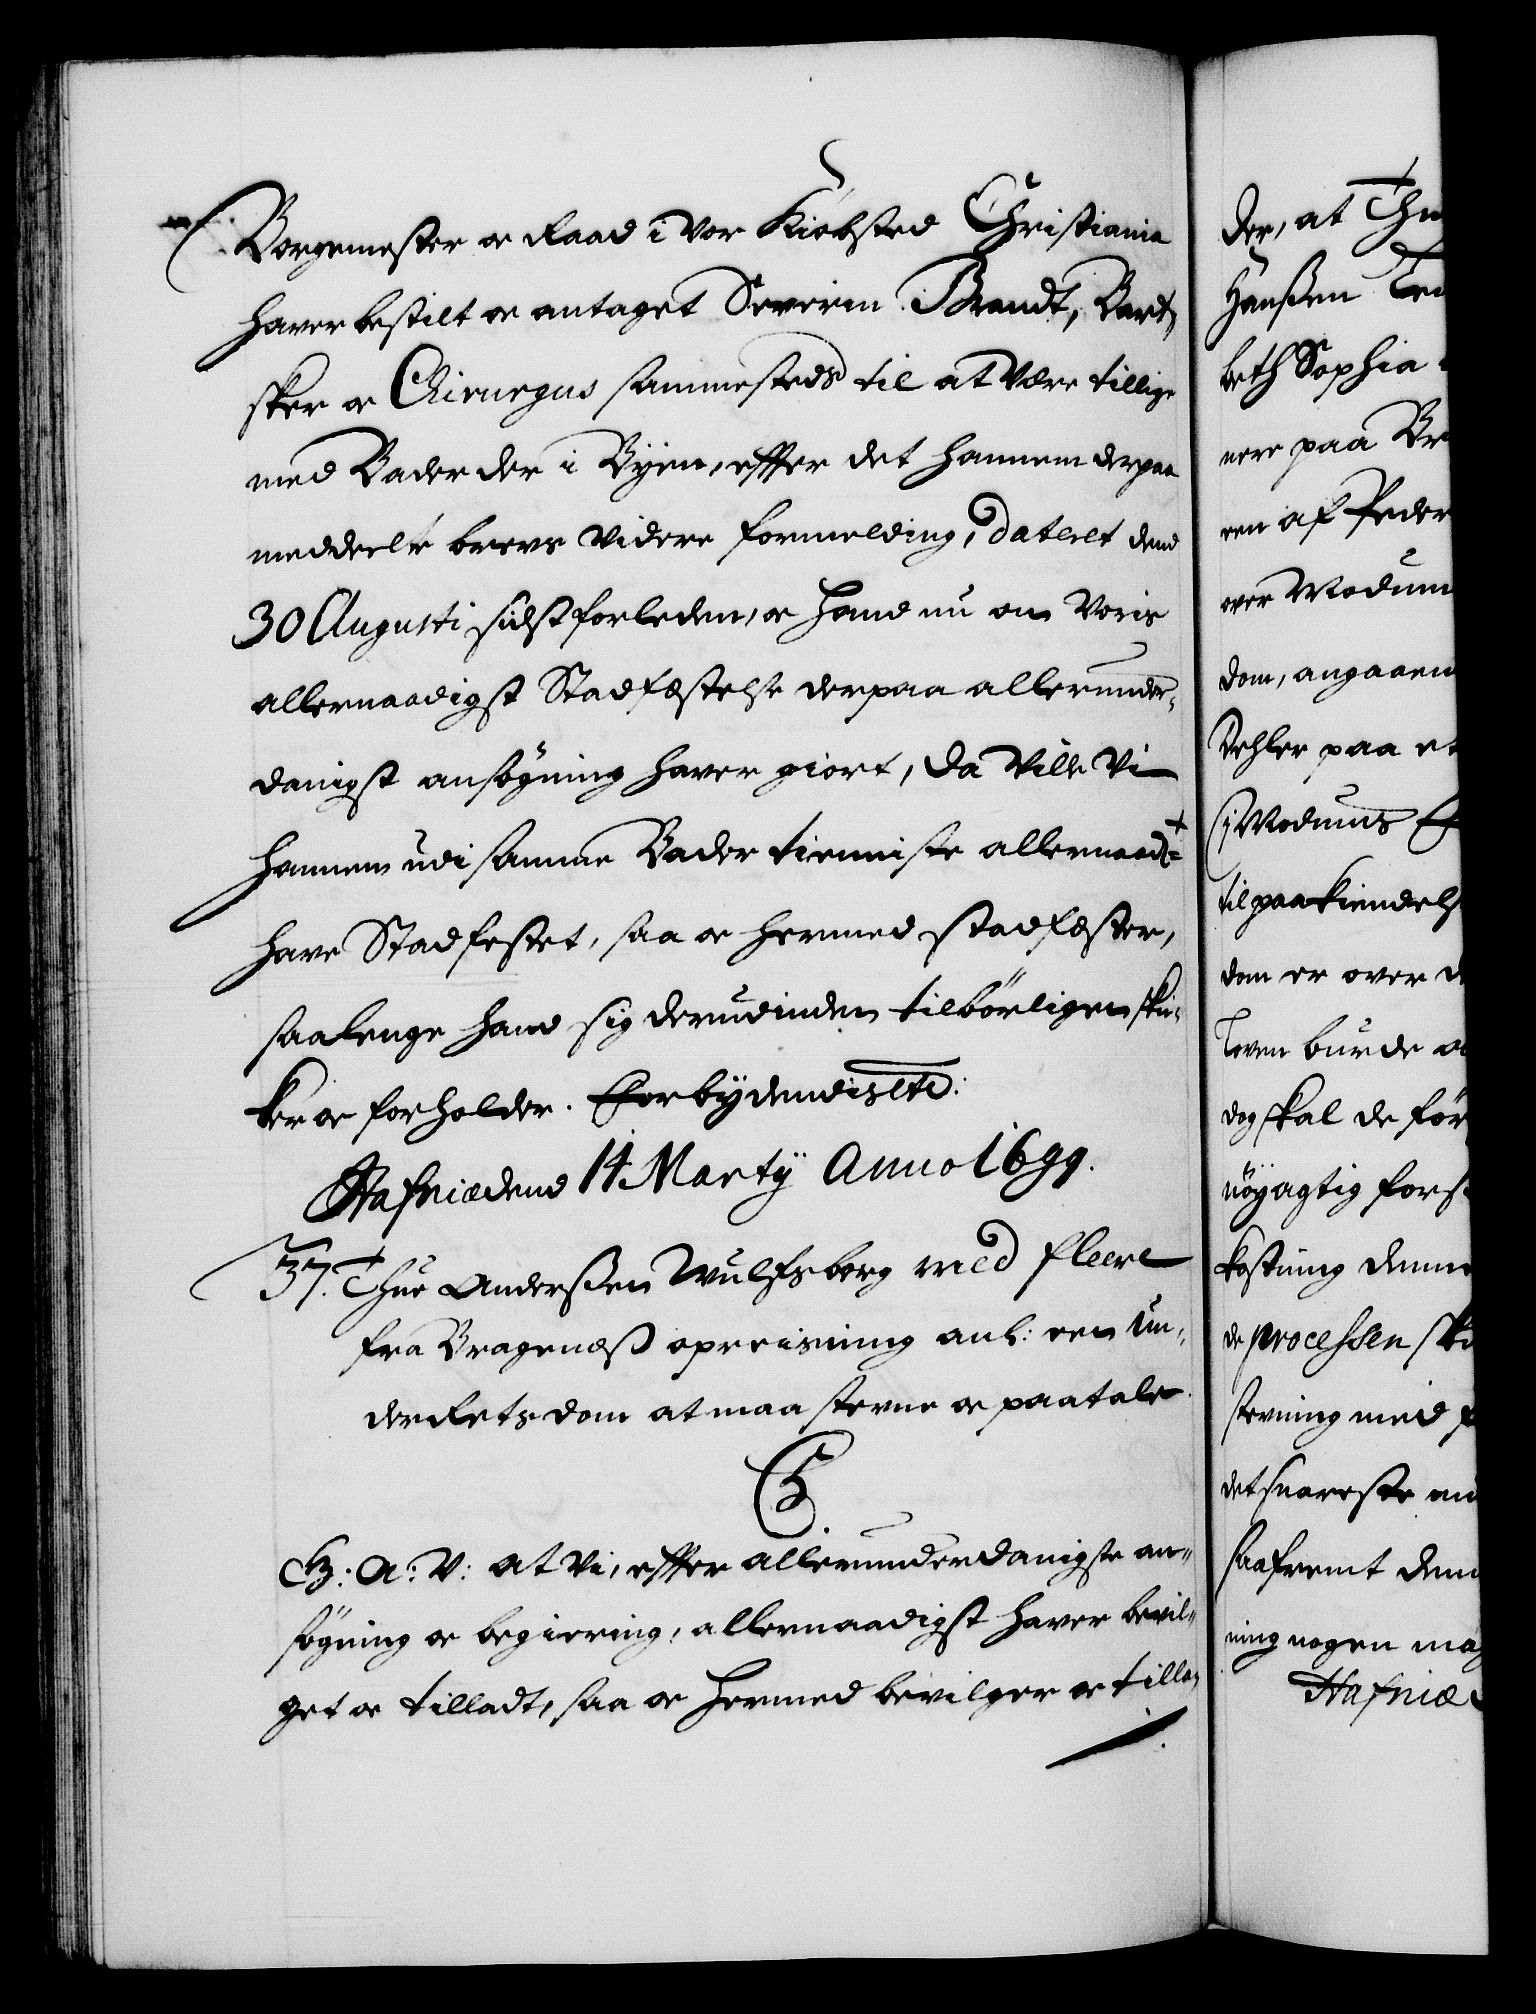 Borgemester oc Raad i Vor Kiøbsted Christiania
haver bestilt oc antaget Severin Brandt, Bard-
sker oc Chirurgus sammesteds til at være tillige
med Bader der i Byen, effter det hannem derpaa
meddeelte brevs videre formelding, dateret dend
30 Augusti sidstforleden, oc hand nu om Voris
allernaadigst Stadfæstelse derpaa allerunder-
danigst ansøgning haver giort, da Ville Vi
hannem udi samme Bader tienniste allernaad:
have Stadfestet, saa oc hermed stadfæster,
saalenge hand sig derudinden tilbørligen skic-
ker oc forholder. Forbydendis etc:
Hafniæ dend 14 Martij Anno 1699.
37. Thue Anderßen Wulfsberg med fleere
fra Bragenæß opreisning anl: een un-
derRets dom at maa stevne oc paatale
C5
G: A: V: at Vi, effter allerunderdanigste an-
søgning oc begiering, allernaadigst haver bevil-
get oc tilladt, saa oc hermed bevilger oc tilla-
der, at Thu
Hanßen
beth Sophia
nere paa Br
een af Peder
over Modum
dom, angaaen
Dehler paa et
i Modums
til paakiendels
dom er over
Loven burde
dog skal de før
nøyagtig fors
kostning denne
de processen ski
stevning med
det snareste
saafremt dem
ning nogen
Hafniæ